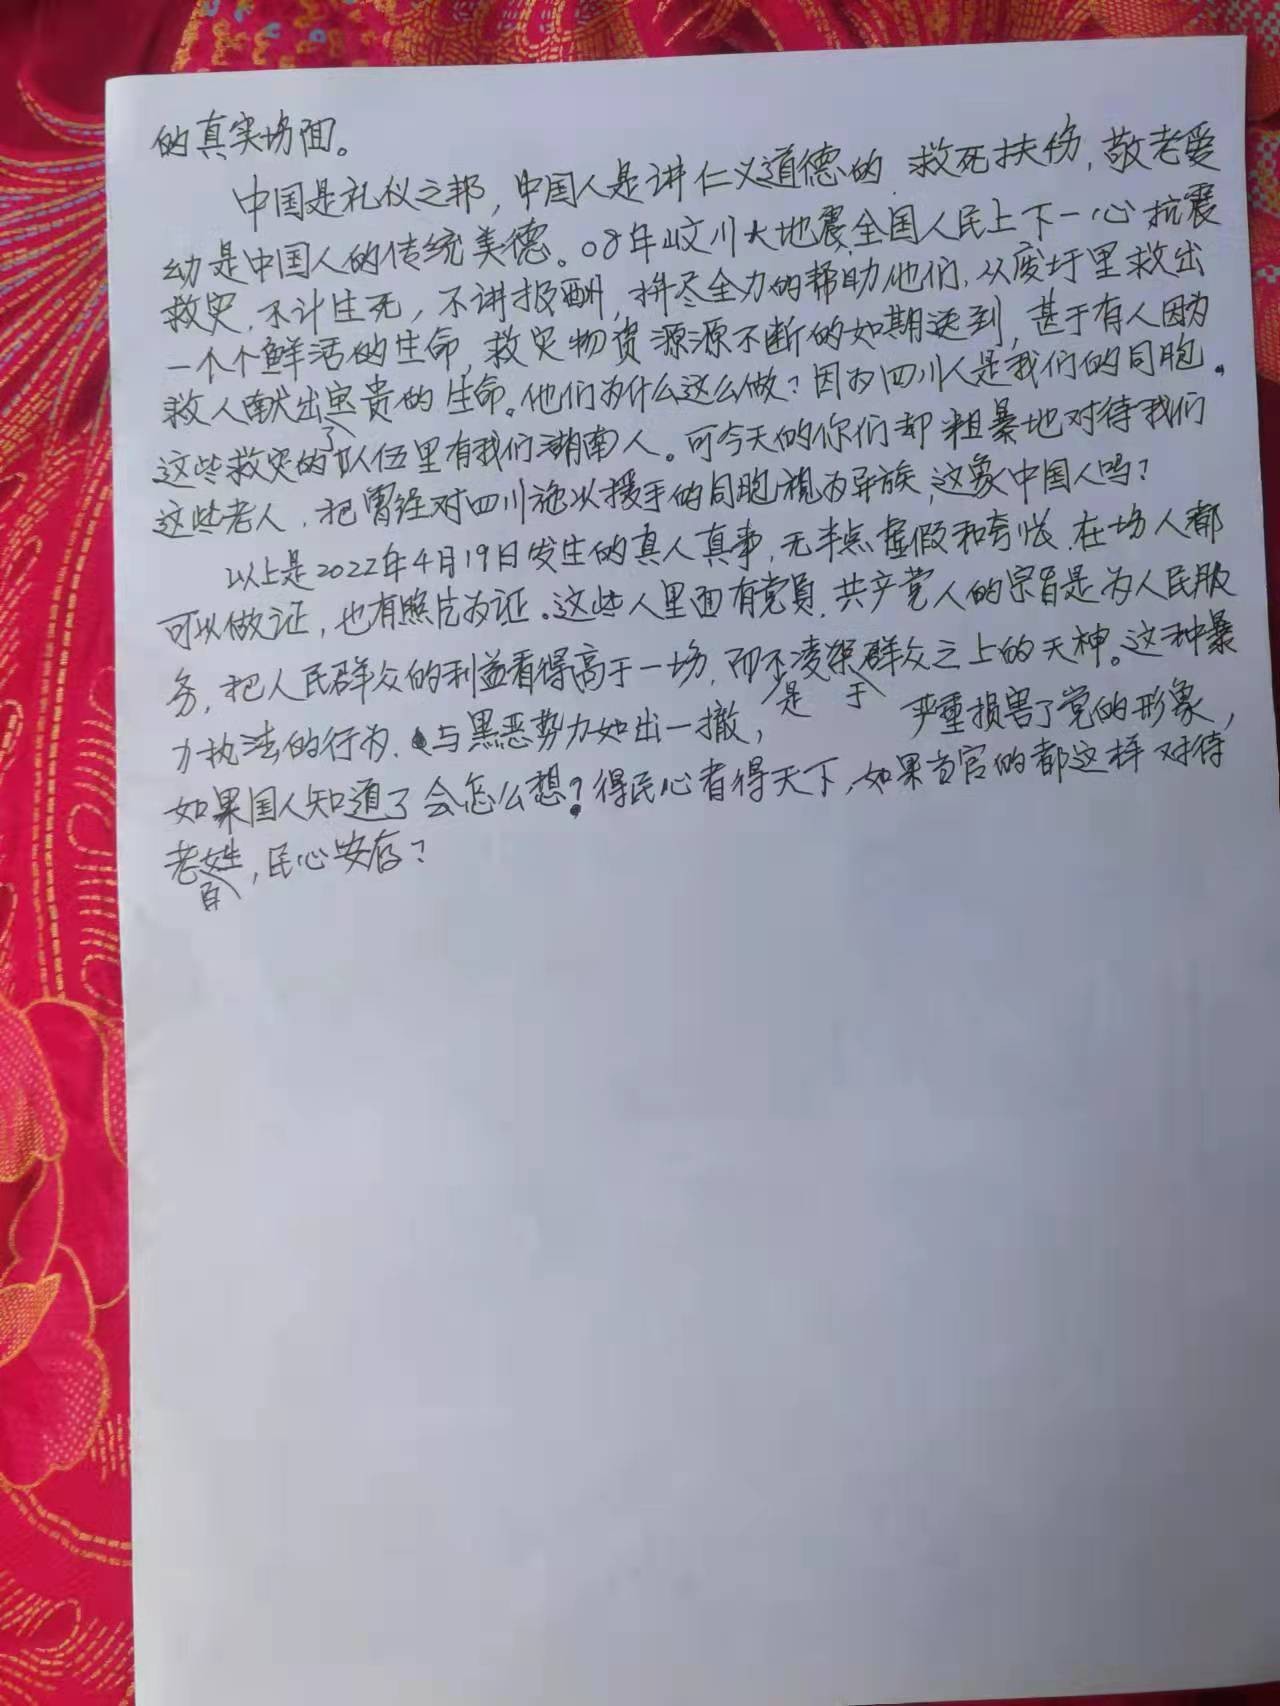 的真实场面。
中国是礼仪之邦，中国人是讲仁义道德的，救死扶伤，敬老爱
幼是中国人的传统美德。08年汶川大地震，全国人民上下一心抗震
救灾，不计生死，不讲报酬，拼尽全力的帮助他们，从废圩里救出
一个个鲜活的生命，救灾物资源源不断的如期送到，甚于有人因为
救人献出了宝贵的生命。他们为什么这么做？因为四川人是我们的同胞。
这些救灾的队伍里有我们湖南人。可今天的你们却粗暴地对待我们
这些老人，把曾经对四川施以援手的同胞视为异族，这象中国人吗？
以上是2022年4月19日发生的真人真事，无半点虚假和夸张，在场人都
可以做证，也有照片为证。这些人里面有党员，共产党人的宗旨是为人民服
务，把人民群众的利益看得高于一切，而不是凌驾于群众之上的天神。这种暴
力执法的行为，与黑恶势力如出一撤，严重损害了党的形象，
如果国人知道了会怎么想？得民心者得天下，如果当官的都这样对待
老百姓，民心安存？